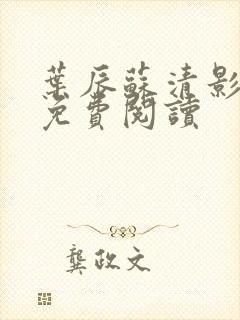 葉辰蘇清影
免費閱讀
龔政文